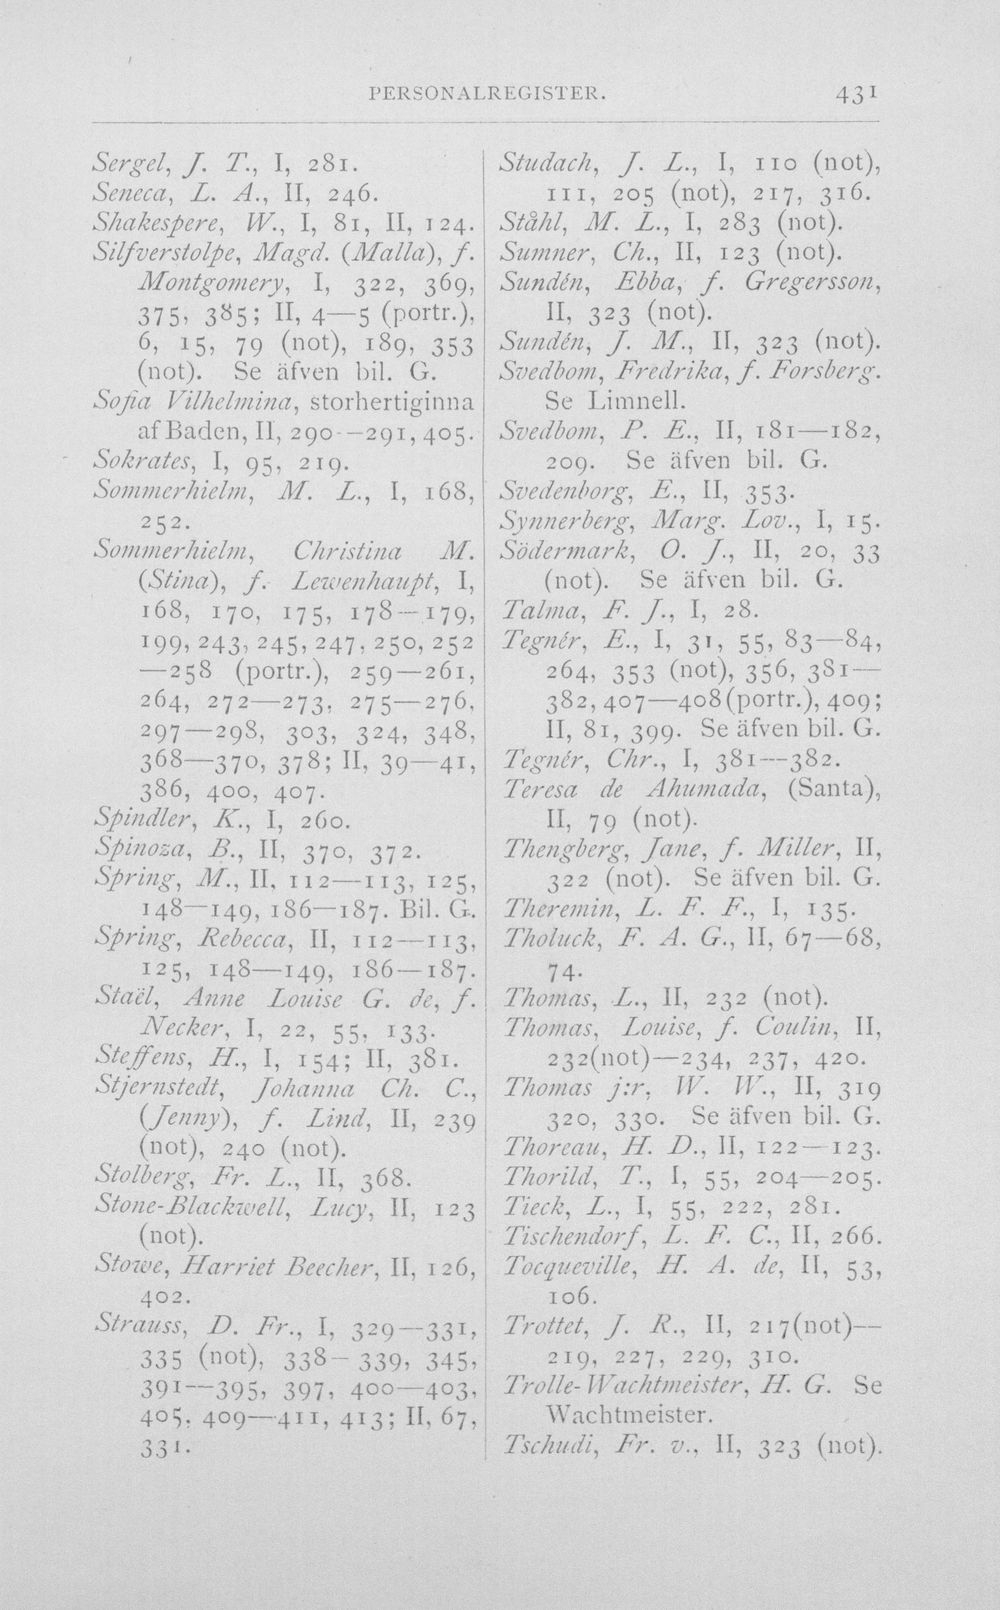 PERSONALREGISTER. 431
Sergel, J. T., I, 281.
Seneca, L. A., II, 246.
Shakespere, W., I, 81, II, 124.
Silfverstolpe, Magd. (Malla), f.
Montgomery, I, 322, 369,
375, 385; II, 4—5 (portr.),
6, 15, 79 (not), 189, 353
(not). Se äfven bil. G.
Sofia Vilhelmina, storhertiginna
af Baden, II, 290—291, 405.
Sokrates, I, 95, 219.
Sommerhielm, M. L., I, 168,
252.
Sommerhielm, Christina M.
(Stina), f. Lewenhaupt, I,
168, 170, 175, 178—179,
199, 243, 245, 247, 250, 252
—258 (portr.), 259—261,
264, 272—273, 275—276,
297—298, 303, 324, 348,
368—370, 378; II, 39—41,
386, 400, 407.
Spindler, K., I, 260.
Spinoza, B., II, 370, 372.
Spring, M., II, 112—113, 125,
148—149, 186—187. Bil. G.
Spring, Rebecca, II, 112—113,
125, 148—149, 186—187.
Staël, Anne Louise G. de, f.
Necker, I, 22, 55, 133.
Steffens, H., I, 154; II, 381.
Stjernstedt, Johanna Ch. C.,
(Jenny), f. Lind, II, 239
(not), 240 (not).
Stolberg, Fr. L., II, 368.
Stone-Blackwell, Lucy, II, 123
(not).
Stowe, Harriet Beecher, II, 126,
402.
Strauss, D. Fr., I, 329—331,
335 (not), 338—339, 345,
391—395, 397, 400—403,
405, 409—411, 413; II, 67,
331.
Studach, J. L., I, 110 (not),
111, 205 (not), 217, 316.
Ståhl, M. L., I, 283 (not).
Sumner, Ch., II, 123 (not).
Sundén, Ebba, f. Gregersson,
II, 323 (not).
Sundén, J. M., II, 323 (not).
Svedbom, Fredrika, f. Forsberg.
Se Limnell.
Svedbom, P. E., II, 181—182,
209. Se äfven bil. G.
Svedenborg, E., II, 353.
Synnerberg, Marg. Lov., I, 15.
Södermark, O. J., II, 20, 33
(not). Se äfven bil. G.
Talma, F. J., I, 28.
Tegnér, E., I, 31, 55, 83—84,
264, 353 (not), 356, 381—
382, 407—408 (portr.), 409;
II, 81, 399. Se äfven bil. G.
Tegnér, Chr., I, 381—382.
Teresa de Ahumada, (Santa),
II, 79 (not).
Thengberg, Jane, f. Miller, II,
322 (not). Se äfven bil. G.
Theremin, L. F. F., I, 135.
Tholuck, F. A. G., II, 67—68,
74.
Thomas, L., II, 232 (not).
Thomas, Louise, f. Coulin, II,
232(not)—234, 237, 420.
Thomas j:r, W. W., II, 319
320, 330. Se äfven bil. G.
Thoreau, H. D., II, 122—123.
Thorild, T., I, 55, 204—205.
Tieck, L., I, 55, 222, 281.
Tischendorf, L. F. C., II, 266.
Tocqueville, H. A. de, II, 53,
106.
Trottet, J. R., II, 217(not)—
219, 227, 229, 310.
Trolle-Wachtmeister, H. G. Se
Wachtmeister.
Tschudi, Fr. v., II, 323 (not).